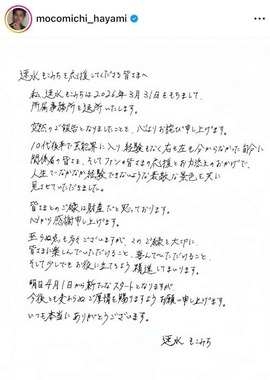 mocomichi_hayami
速水もこみちを応援してくださる皆さまへ
私、速水もこみちは2026年3月31日をもちまして、
所属事務所を退所いたします。
突然のご報告となりましたことを、心よりお詫び申し上げます。
10代後半で芸能界に入り、経験もなく右も左も分からなかった自分に
関係者の皆さま、そしてファンの皆さまの応援とお力添えのおかげで、
人生でなかなか経験できないような素敵な景色を共に
見させていただきました。
皆さまとのご縁は財産だと思っております。
心から感謝申し上げます。
至らぬ点も多くございますが、このご縁を大切に、
皆さまに楽しんでいただけること、喜んでいただけること、
そして少しでもお役に立てるよう精進してまいります。
明日4月1日から新たなスタートとなりますが、
今後とも変わらぬご厚情を賜りますようお願い申し上げます。
いつも本当にありがとうございます。
速水もこみち